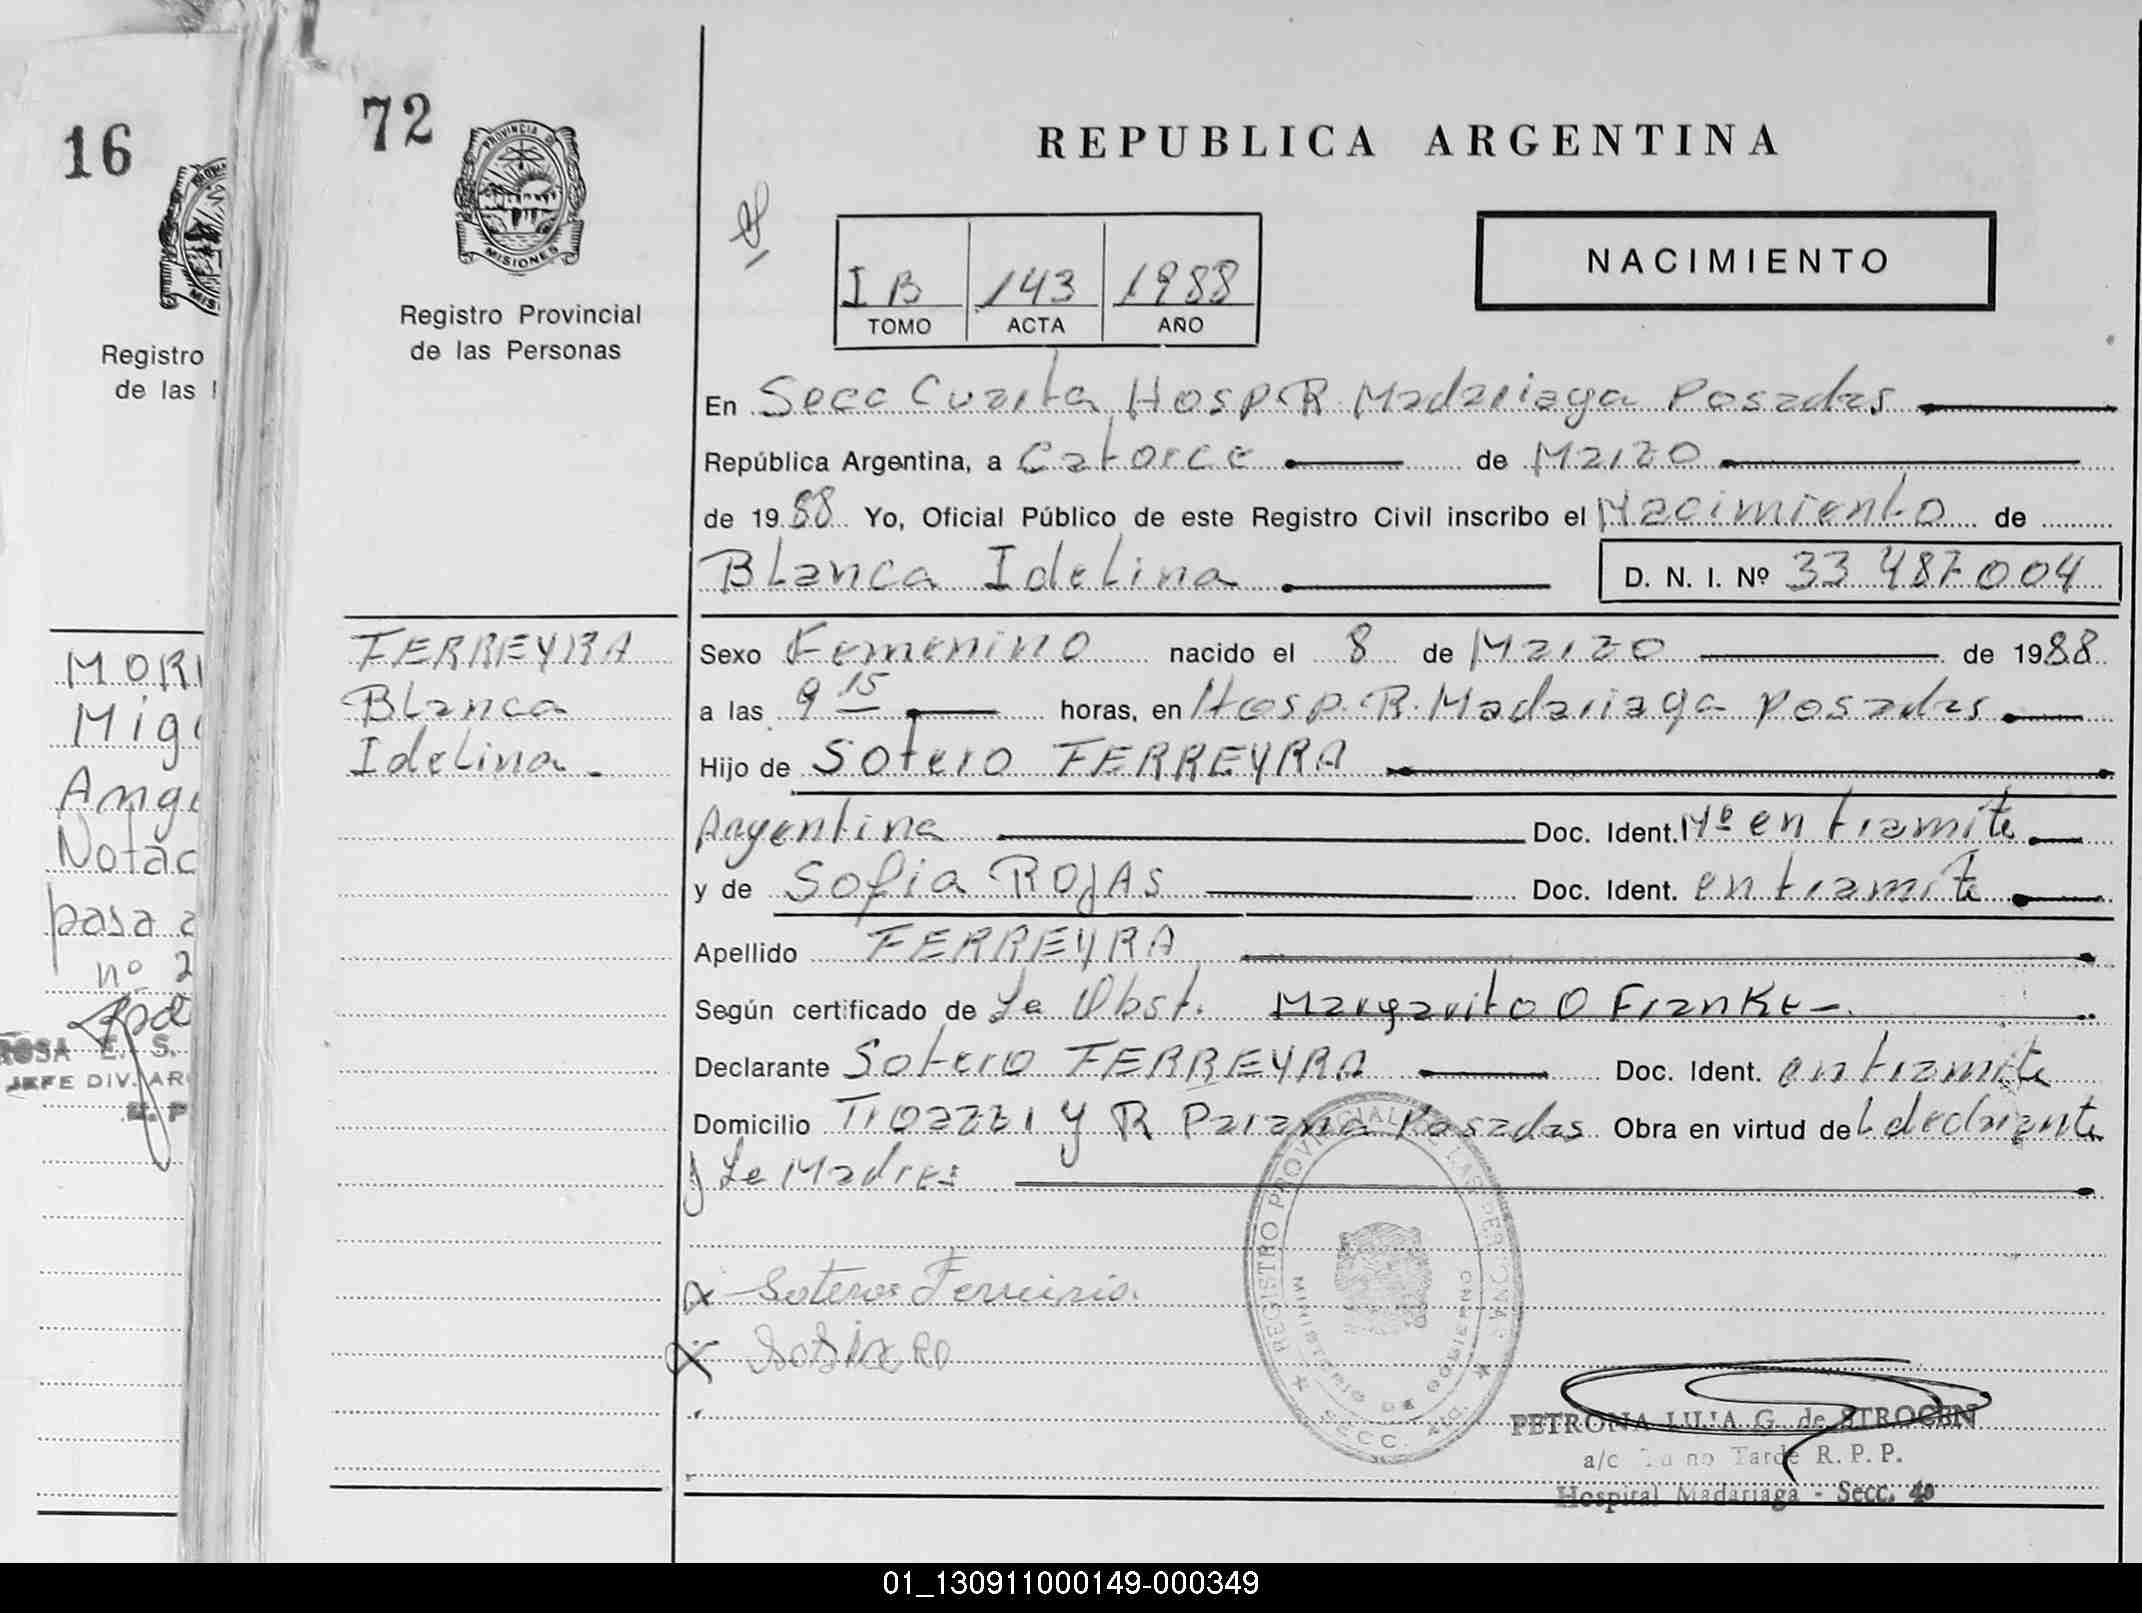 16
Registro
de las
MOR
Mig
Ang
Notac
pasa a
nº 2
ROSA E. S.
JEFE DIV. AR
72
PROVINCIA D
MISIONES
Registro Provincial
de las Personas
FERREYRA
Blanca
Idelina.
REPUBLICA ARGENTINA
I B 143 1988
TOMO ACTA AÑO
NACIMIENTO
En Secc Cuarta Hosp R Madariaga Posadas
República Argentina, a Catorce de Marzo
de 1988 Yo, Oficial Público de este Registro Civil inscribo el Nacimiento de
Blanca Idelina D. N. I. Nº 33 487 004
Sexo Femenino nacido el 8 de Marzo de 1988
a las 9 15 horas, en Hosp. R. Madariaga Posadas
Hijo de Sotero FERREYRA
Argentina Doc. Ident. Nº en tramite
y de Sofia ROJAS Doc. Ident. en tramite
Apellido FERREYRA
Según certificado de La Obst. Margarita O Franke
Declarante Sotero FERREYRA Doc. Ident. en tramite
Domicilio y R Parana Posadas Obra en virtud del declarante
y La Madre
Sotero
REGISTRO PROVINCIAL DE LAS PERSONAS
MINISTERIO DE GOBIERNO
SECC. 4ta.
PETRONA LILIA G. de STROCEN
a/c Turno Tarde R. P. P.
Hospital Madariaga - Secc. 4a
01_130911000149-000349